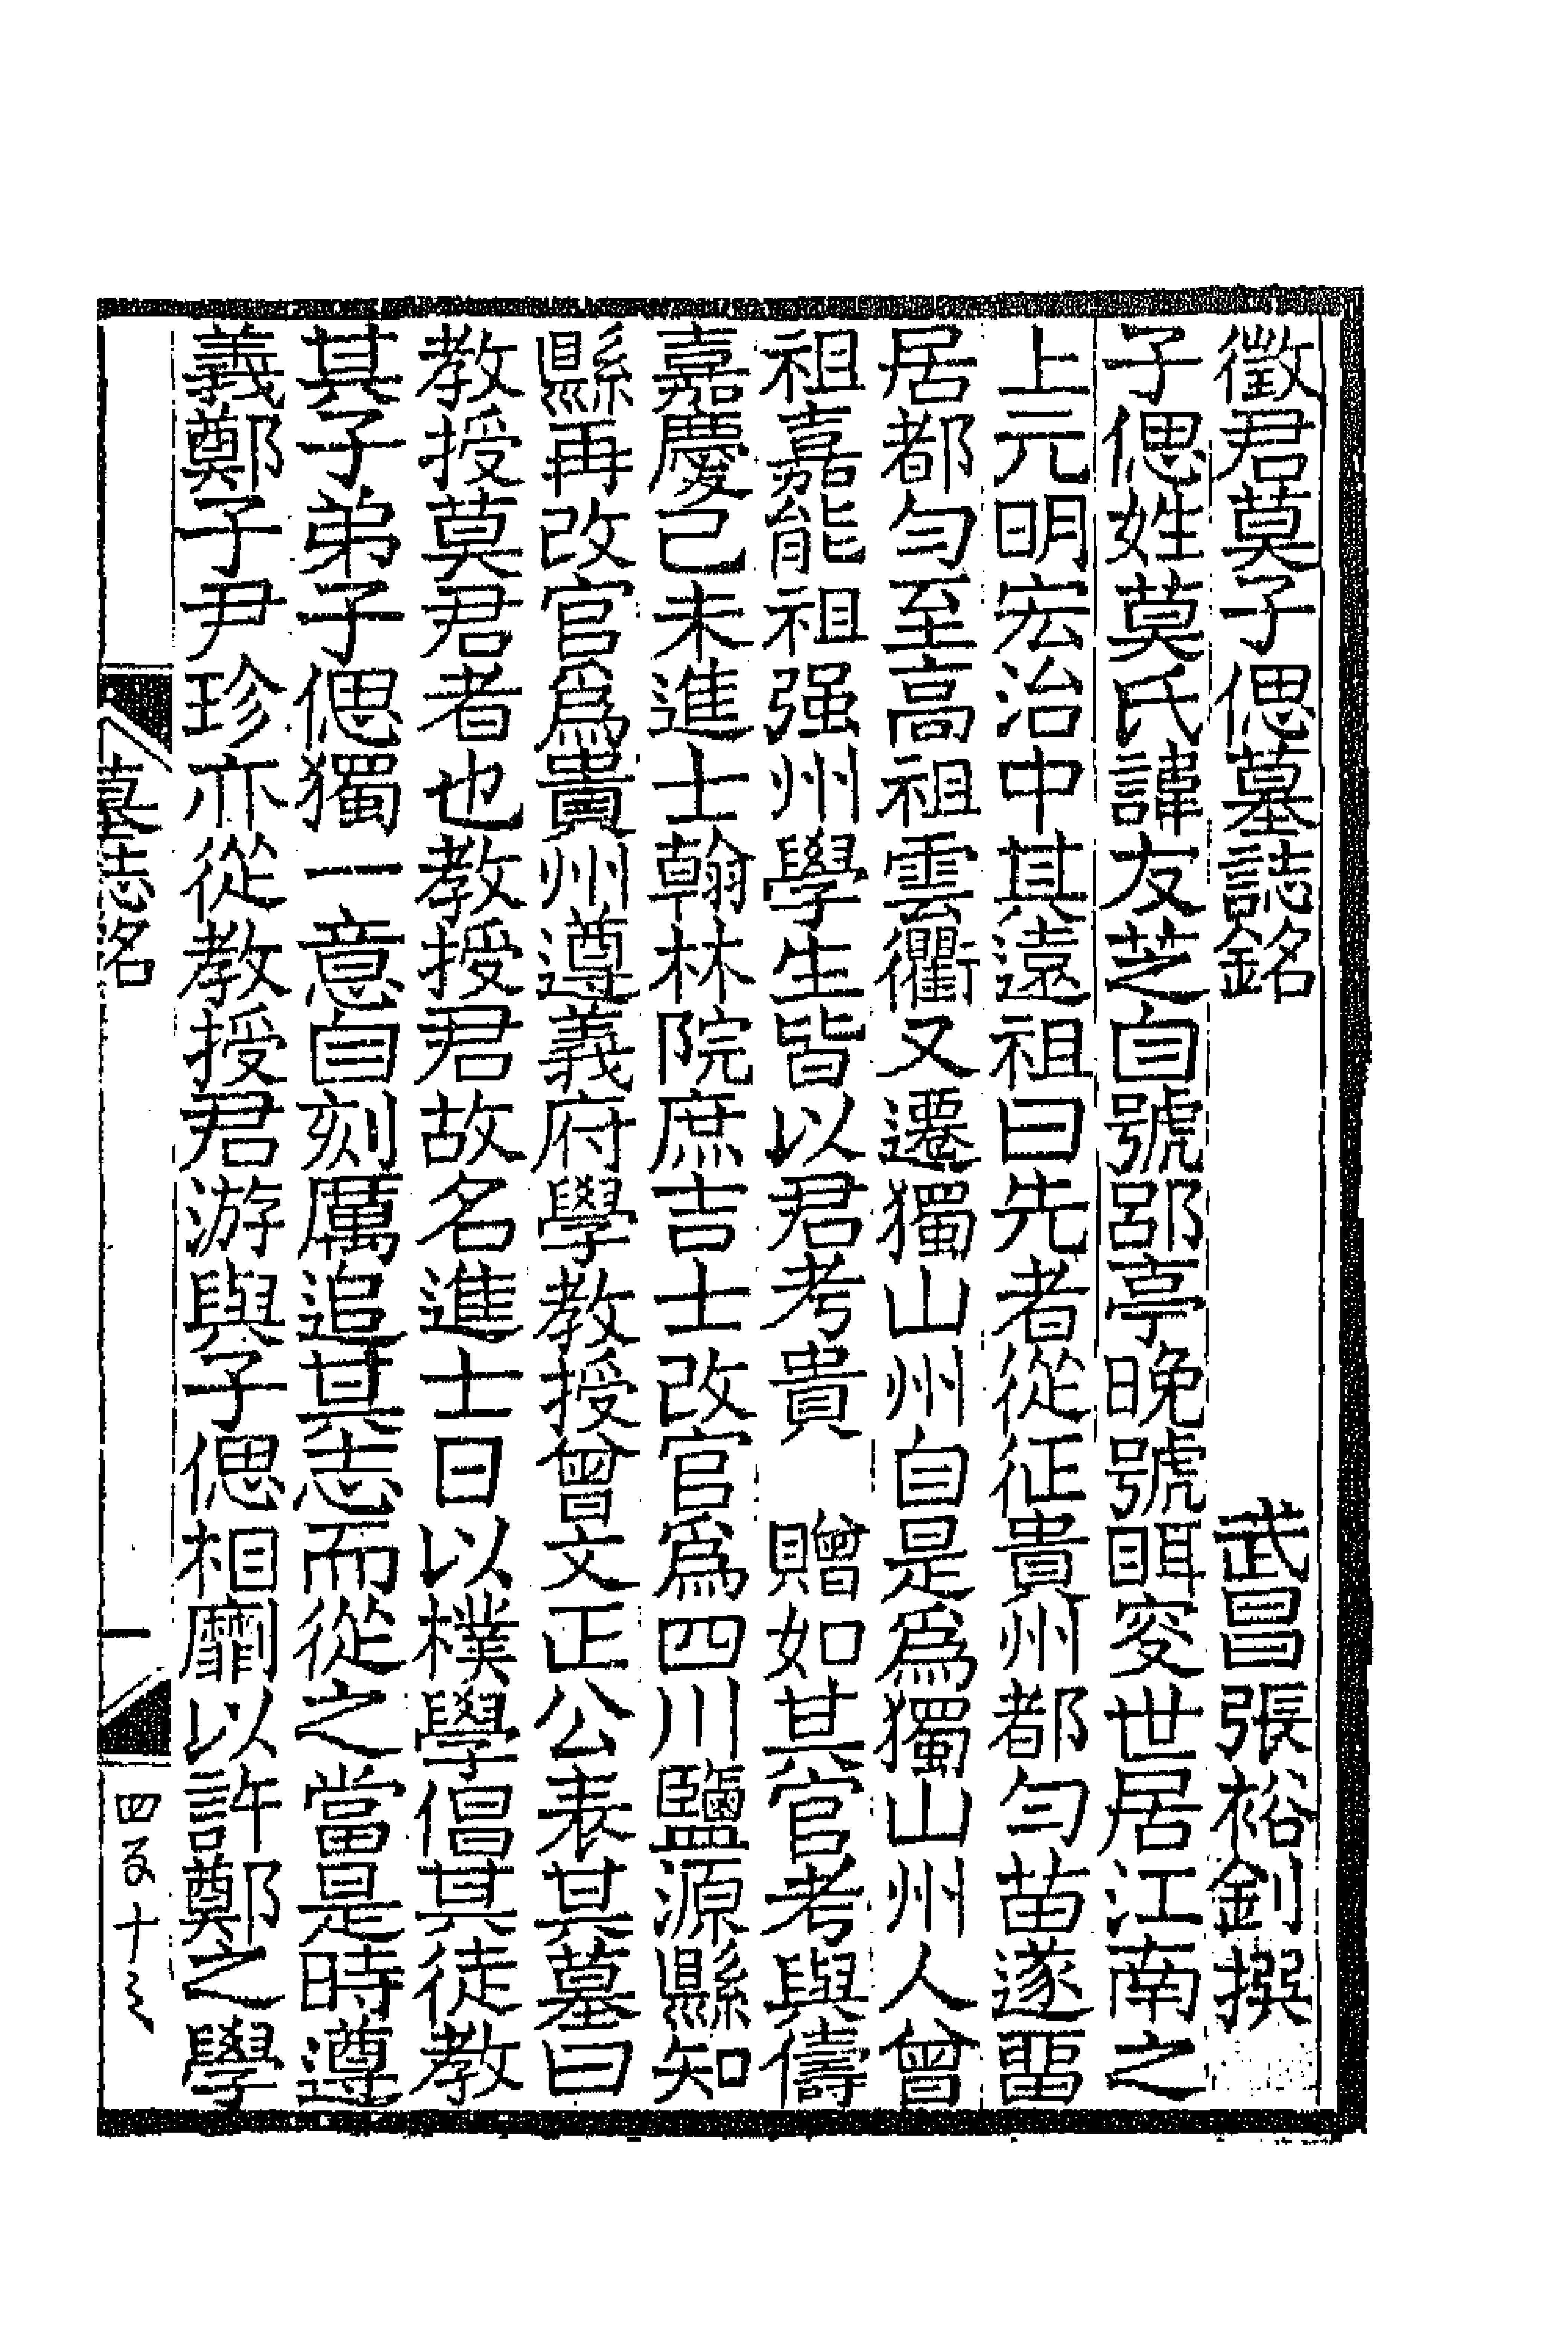 徵君莫子偲墓誌銘　武昌張裕釗撰
子偲姓莫氏諱友芝自號郘亭晚號眲叜世居江南之
上元明宏治中其遠祖曰先者從征貴州都勻苗遂畱
居都勻至高祖雲衢又遷獨山州自是爲獨山州人曾
祖嘉能祖强州學生皆以君考貴　贈如其官考與儔
嘉慶己未進士翰林院庶吉士改官爲四川鹽源縣知
縣再改官爲貴州遵義府學教授曾文正公表其墓曰
教授莫君者也教授君故名進士日以樸學倡其徒教
其子弟子偲獨一意自刻厲追其志而從之當是時遵
義鄭子尹珍亦從教授君游與子偲相劘以許鄭之學
墓志銘　一